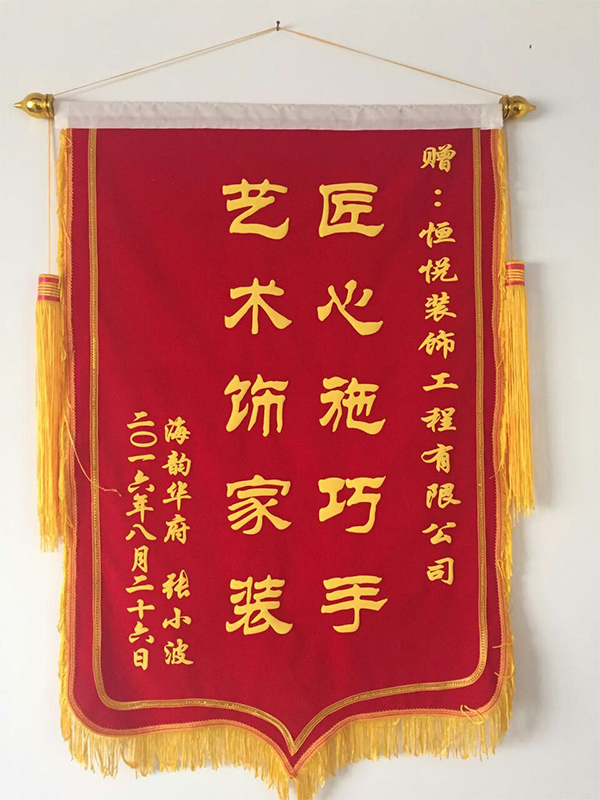 赠：恒悦装饰工程有限公司
匠心施巧手
艺术饰家装
海韵华府 张小波
二〇一六年八月二十六日